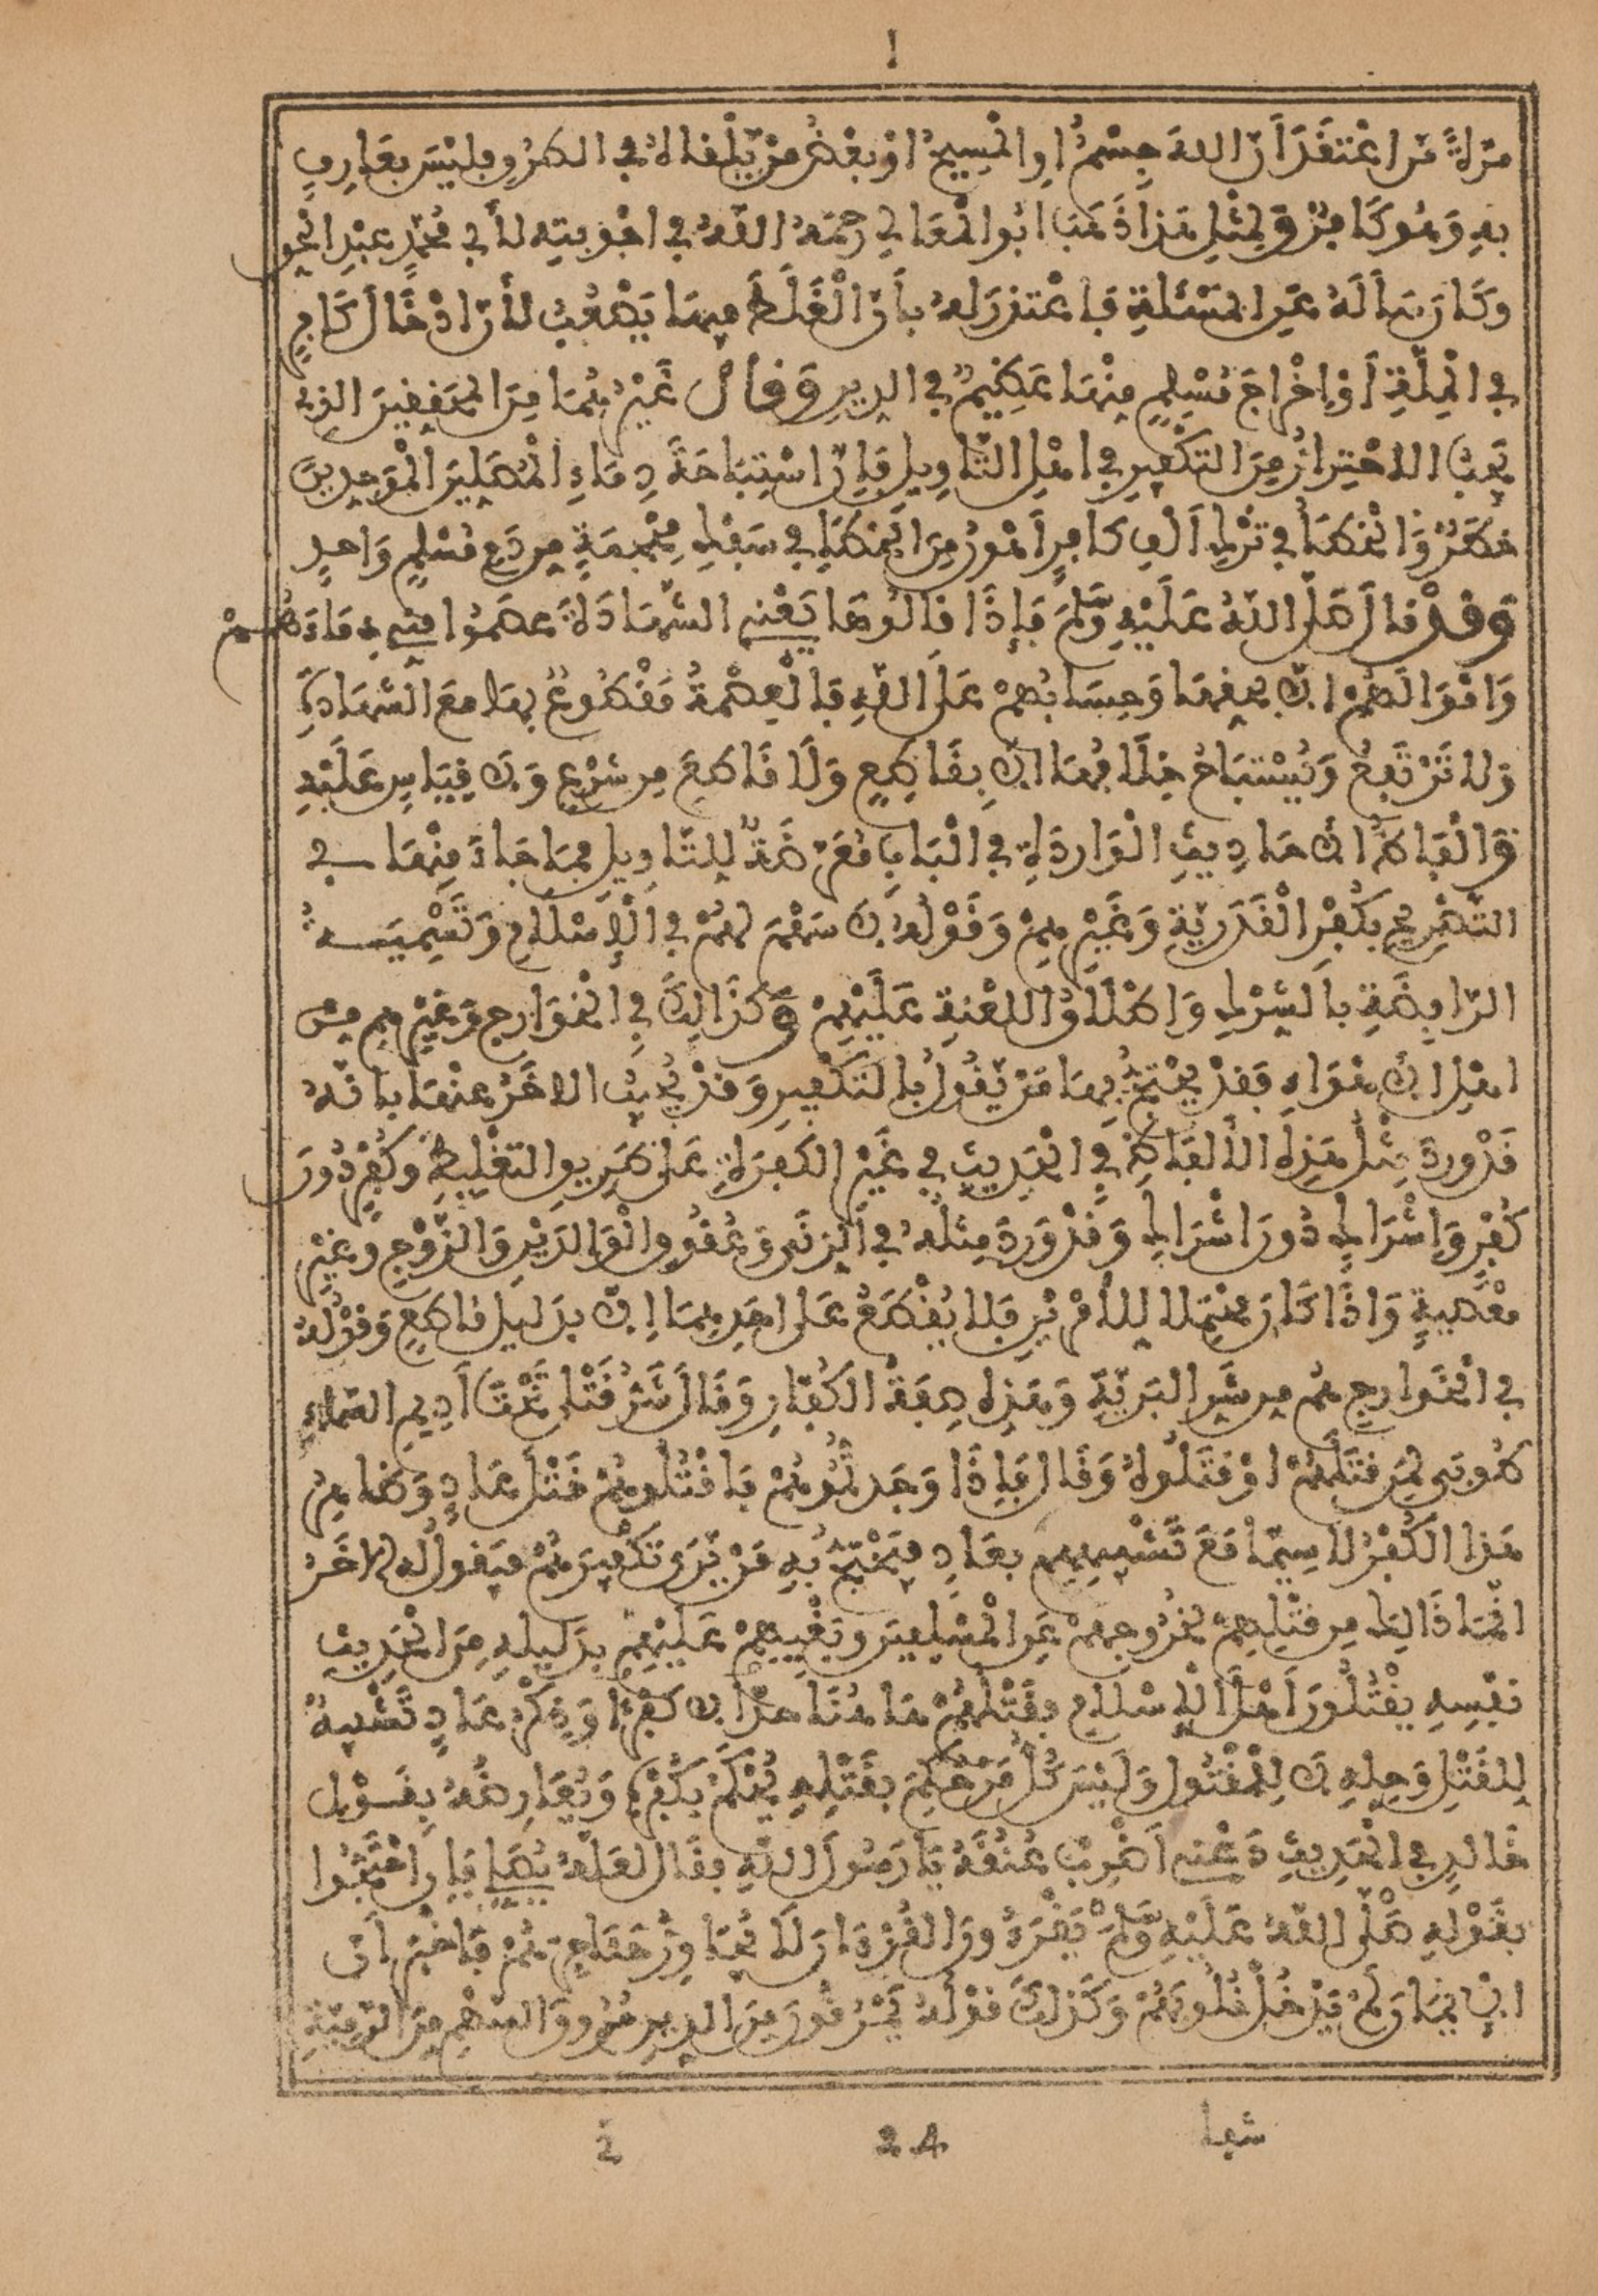 ا
مرة من اعتقد أن الله جسم او المسيح او بعض من يلقاه في الطرو فليس بعارف
به وهو كافر ولمثل هذا ذهب ابو المعالي رحمه الله في اجوبته لأبي محمد عبد الحق
وكان سأله عن المسئلة فاعتذر له بأن الغلط فيها يصعب لأن ادخال كافر
في الملة أو إخراج مسلم منها عظيم في الدين وقال غيرهما من المحققين الذي
يجب الاحتراز من التكفير في اهل التأويل فإن استباحة دماء المصلين الموحدين
خطر والخطأ في ترك ألف كافر أهون من الخطإ في سفك محجمة من دم مسلم واحد
وقد قال صلى الله عليه وسلم فإذا قالوها يعني الشهادة عصموا مني دماءهم
واموالهم الا بحقها وحسابهم على الله فالعصمة مقطوع بها مع الشهادة
ولا ترتفع ويستباح خلافها الا بقاطع ولا قاطع من شرع ولا قياس عليه
والفاظ الاحاديث الواردة في الباب معرضة للتأويل فما جاء منها في
التصريح بكفر القدرية وغيرهم وقوله لا سهم لهم في الإسلام وتسميته
الرافضة بالشرك واطلاق اللعنة عليهم وكذالك في الخوارج وغيرهم من
اهل الاهواء فقد يحتج بها من يقول بالتكفير وقد يجيب الاخر عنها بانه
قد ورد مثل هذه الألفاظ في الحديث في غير الكفرة على طريق التغليظ وكفر دون
كفر وإشراك دون اشراك وقد ورد مثله في الزنى وعقوق الوالدين والزوج وغير
معصية واذا كان محتملا للأمرين فلا يقطع على احدهما إلا بدليل قاطع وقوله
في الخوارج هم من شر البرية وهذه صفة الكفار وقال شر قتلى تحت أديم السماء
طوبى لمن قتلهم او قتلوه وقال فإذا وجدتموهم فاقتلوهم قتل عاد وظاهر
هذا الكفر لا سيما مع تشبيههم بعاد فيحتج به من يرى تكفيرهم فيقول له الاخر
انما ذالك من قتلهم لخروجهم على المسلمين وبغيهم عليهم بدليله من الحديث
نفسه يقتلون أهل الإسلام فقتلهم هاهنا حد لا كفر وذكر عاد تشبيه
للقتل وحله لا للمقتول وليس كل من حكم بقتله يحكم بكفره ويعارضه بقول
خالد في الحديث دعني أضرب عنقه يا رسول الله فقال لعله يصلي فإن احتجوا
بقوله صلى الله عليه وسلم يقرءون القرءان لا يجاوز حناجرهم فاخبر أن
الإيمان لم يدخل قلوبهم وكذلك قوله يمرقون من الدين مروق السهم من الرمية
شفا
24
2